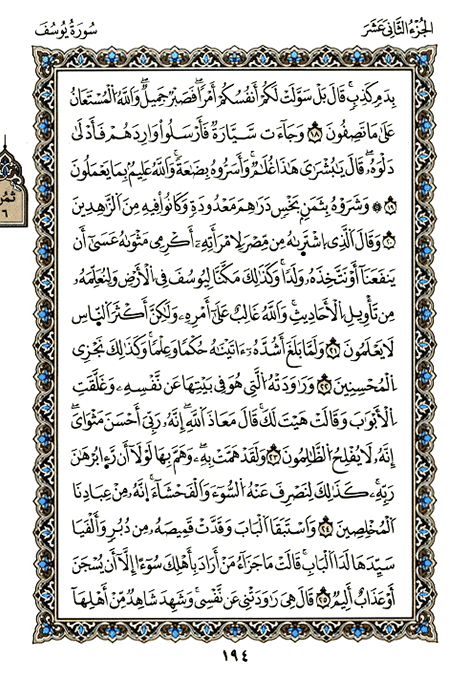 الجزء الثاني عشر
سورة يوسف
بِدَمٍ كَذِبٍ قَالَ بَلْ سَوَّلَتْ لَكُمْ أَنفُسُكُمْ أَمْرًا فَصَبْرٌ جَمِيلٌ وَاللَّهُ الْمُسْتَعَانُ
عَلَىٰ مَا تَصِفُونَ ١٨ وَجَاءَتْ سَيَّارَةٌ فَأَرْسَلُوا وَارِدَهُمْ فَأَدْلَىٰ
دَلْوَهُ قَالَ يَا بُشْرَايَ هَٰذَا غُلَامٌ وَأَسَرُّوهُ بِضَاعَةً وَاللَّهُ عَلِيمٌ بِمَا يَعْمَلُونَ
١٩ وَشَرَوْهُ بِثَمَنٍ بَخْسٍ دَرَاهِمَ مَعْدُودَةٍ وَكَانُوا فِيهِ مِنَ الزَّاهِدِينَ
٢٠ وَقَالَ الَّذِي اشْتَرَاهُ مِن مِّصْرَ لِامْرَأَتِهِ أَكْرِمِي مَثْوَاهُ عَسَىٰ أَن
يَنفَعَنَا أَوْ نَتَّخِذَهُ وَلَدًا وَكَذَٰلِكَ مَكَّنَّا لِيُوسُفَ فِي الْأَرْضِ وَلِنُعَلِّمَهُ
مِن تَأْوِيلِ الْأَحَادِيثِ وَاللَّهُ غَالِبٌ عَلَىٰ أَمْرِهِ وَلَٰكِنَّ أَكْثَرَ النَّاسِ
لَا يَعْلَمُونَ ٢١ وَلَمَّا بَلَغَ أَشُدَّهُ ءَاتَيْنَاهُ حُكْمًا وَعِلْمًا وَكَذَٰلِكَ نَجْزِي
الْمُحْسِنِينَ ٢٢ وَرَاوَدَتْهُ الَّتِي هُوَ فِي بَيْتِهَا عَن نَّفْسِهِ وَغَلَّقَتِ
الْأَبْوَابَ وَقَالَتْ هِيتَ لَكَ قَالَ مَعَاذَ اللَّهِ إِنَّهُ رَبِّيَ أَحْسَنَ مَثْوَايَ
إِنَّهُ لَا يُفْلِحُ الظَّالِمُونَ ٢٣ وَلَقَدْ هَمَّتْ بِهِ وَهَمَّ بِهَا لَوْلَا أَن رَّءَا بُرْهَانَ
رَبِّهِ كَذَٰلِكَ لِنَصْرِفَ عَنْهُ السُّوءَ وَالْفَحْشَاءَ إِنَّهُ مِنْ عِبَادِنَا
الْمُخْلَصِينَ ٢٤ وَاسْتَبَقَا الْبَابَ وَقَدَّتْ قَمِيصَهُ مِن دُبُرٍ وَأَلْفَيَا
سَيِّدَهَا لَدَا الْبَابِ قَالَتْ مَا جَزَاءُ مَنْ أَرَادَ بِأَهْلِكَ سُوءًا إِلَّا أَن يُسْجَنَ
أَوْ عَذَابٌ أَلِيمٌ ٢٥ قَالَ هِيَ رَاوَدَتْنِي عَن نَّفْسِي وَشَهِدَ شَاهِدٌ مِّنْ أَهْلِهَا
ثمن
٦
١٩٤